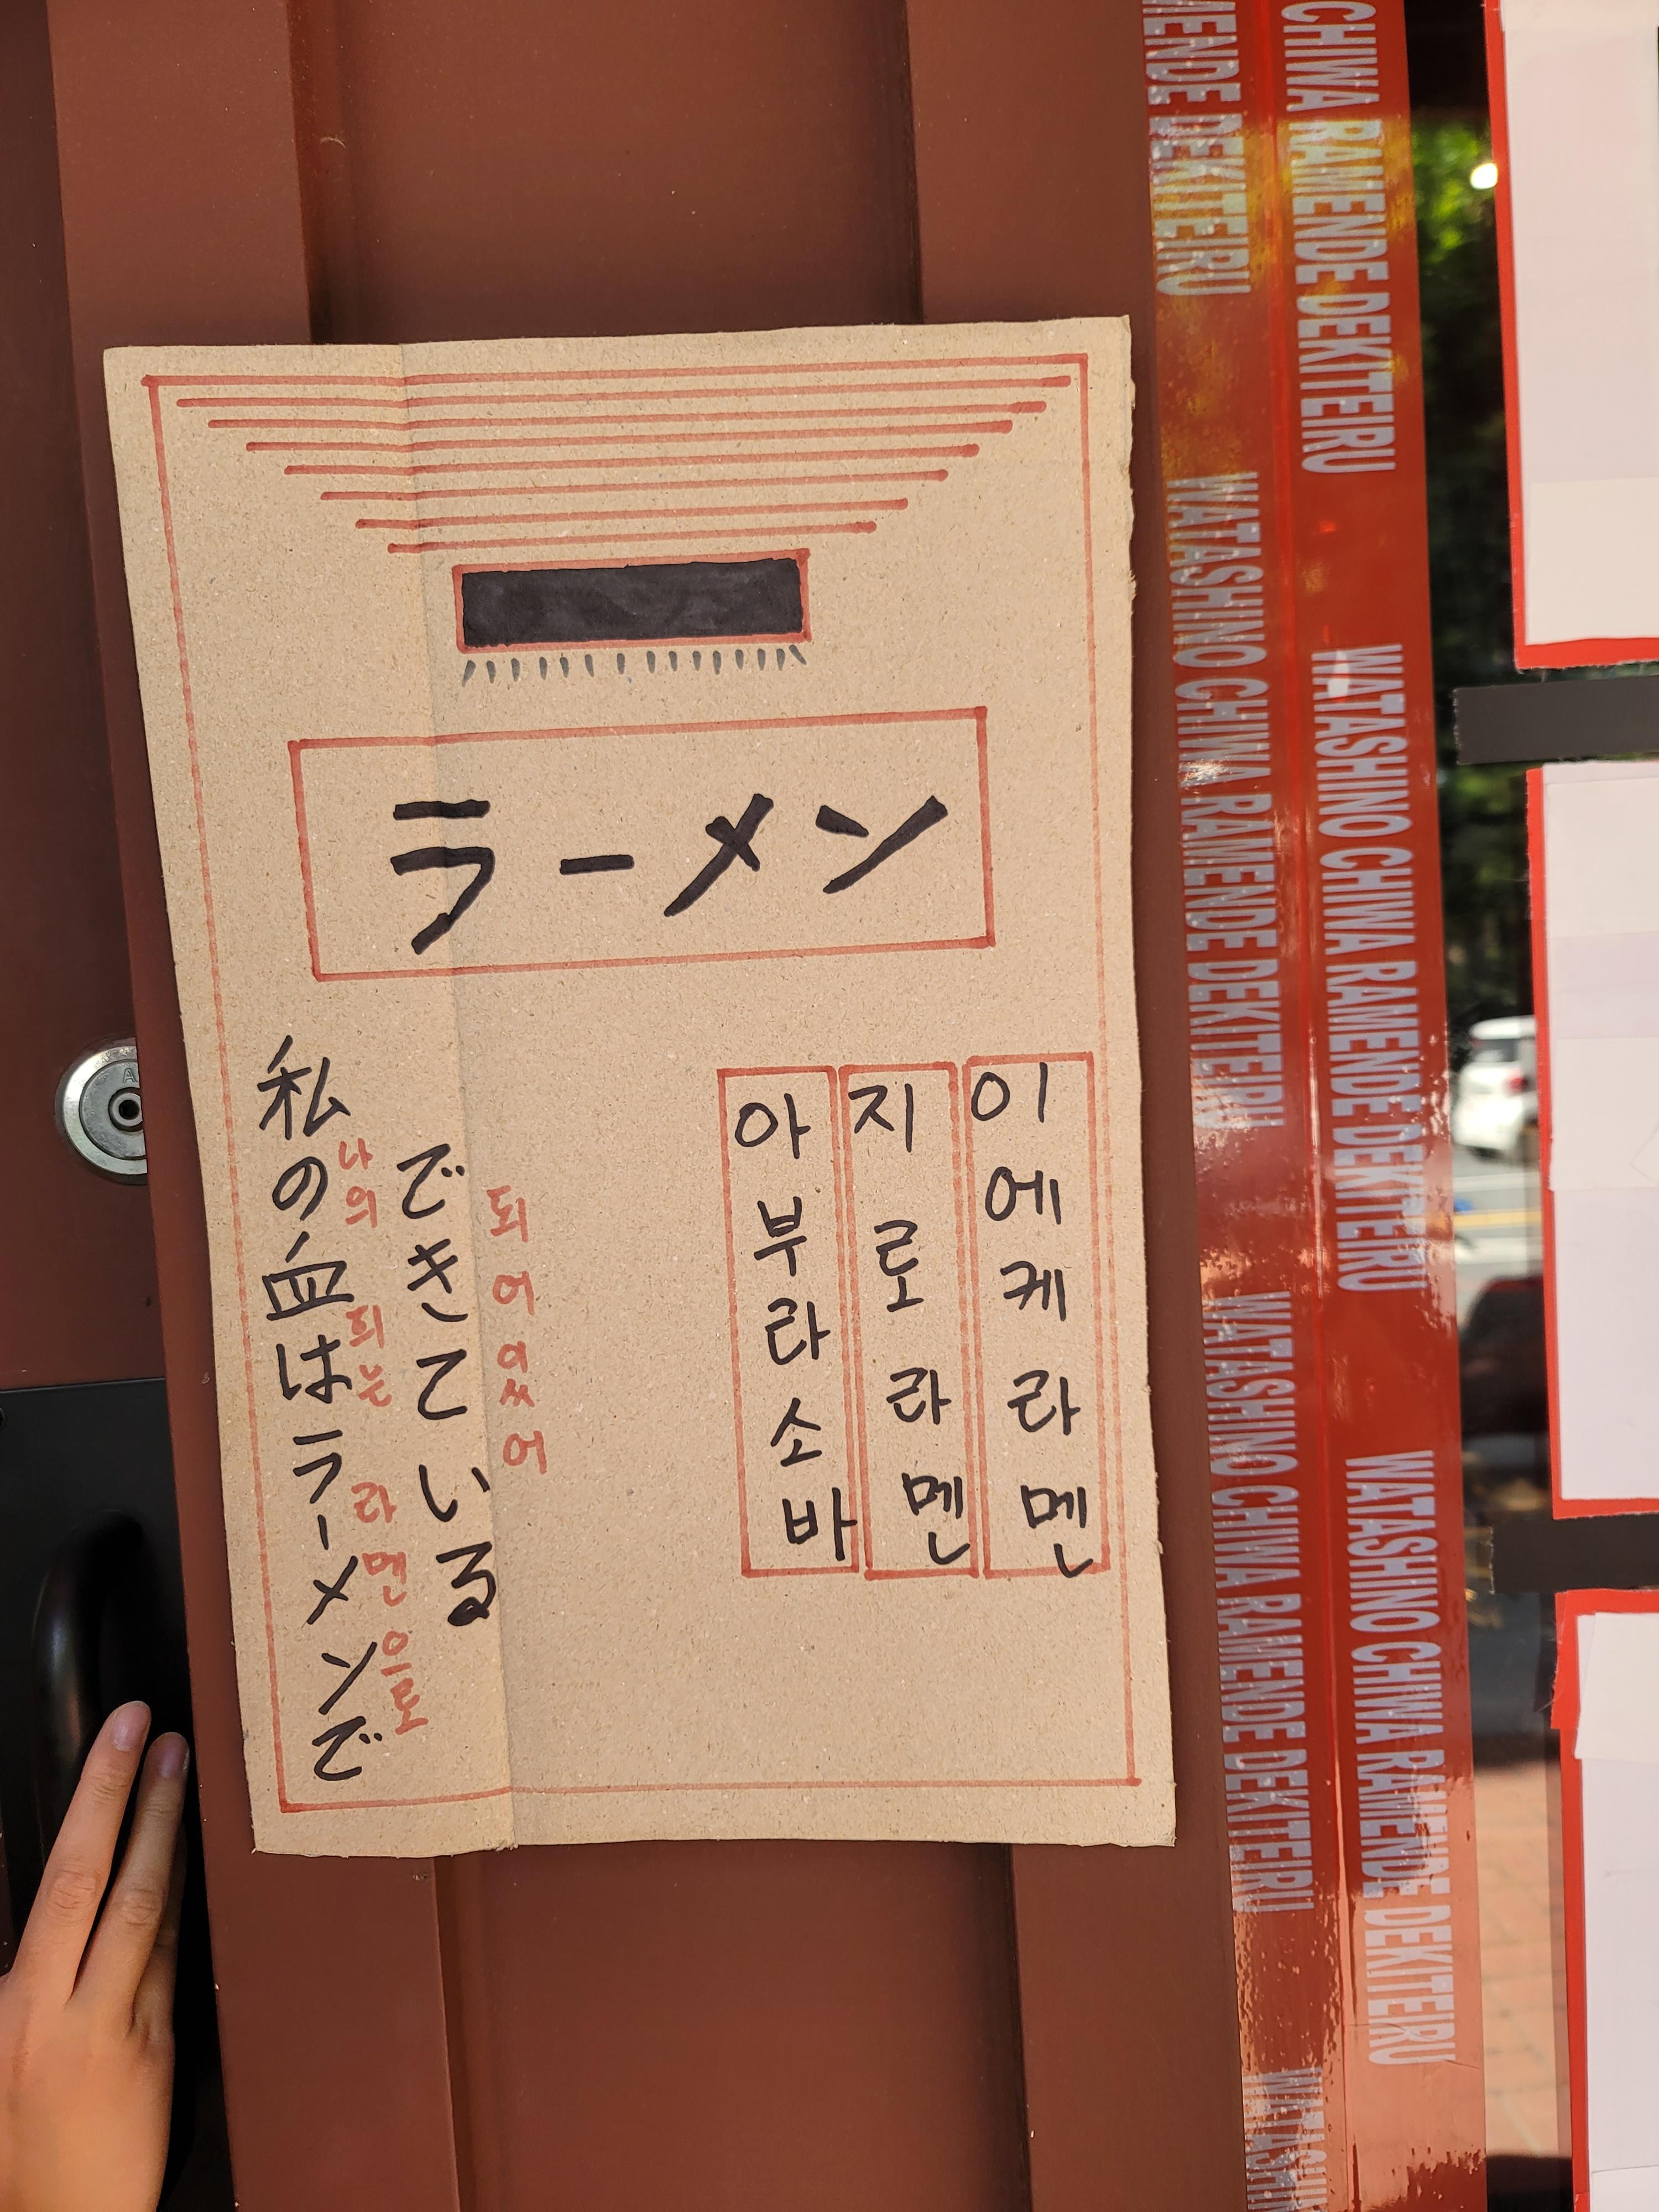 ラーメン
이에케라멘
지로라멘
아부라소바
私の血はラーメンで
나의 피는 라멘으로
できている
되어있어
CHIWA RAMENDE DEKITEIRU
WATASHINO CHIWA RAMENDE DEKITEIRU
WATASHINO CHIWA RAMENDE DEKITEIRU
MENDE DEKITEIRU
WATASHINO CHIWA RAMENDE DEKITEIRU
WATASHINO CHIWA RAMENDE DEKITEIRU
WATASHIN